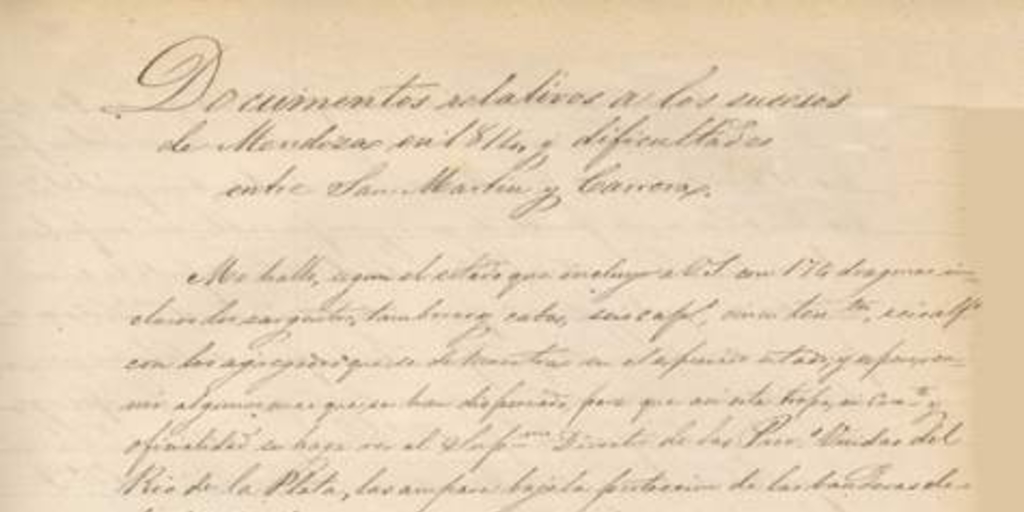 Documentos relativos a los sucesos
de Mendoza en 1814, y dificultades
entre San Martin y Carrera.
Me hallo, segun el estado que incluyo a V.S. con 176 dragones in-
clusos los sargentos, tambores y cabos,
con los agregados que se demuestran en el espresado estado, y
algunos mas que se han dispersado, para que
oficialidad se haga ver al Sup.mo Director de las Prov.s Unidas del
Rio de la Plata, los ampare bajo la proteccion de las banderas de